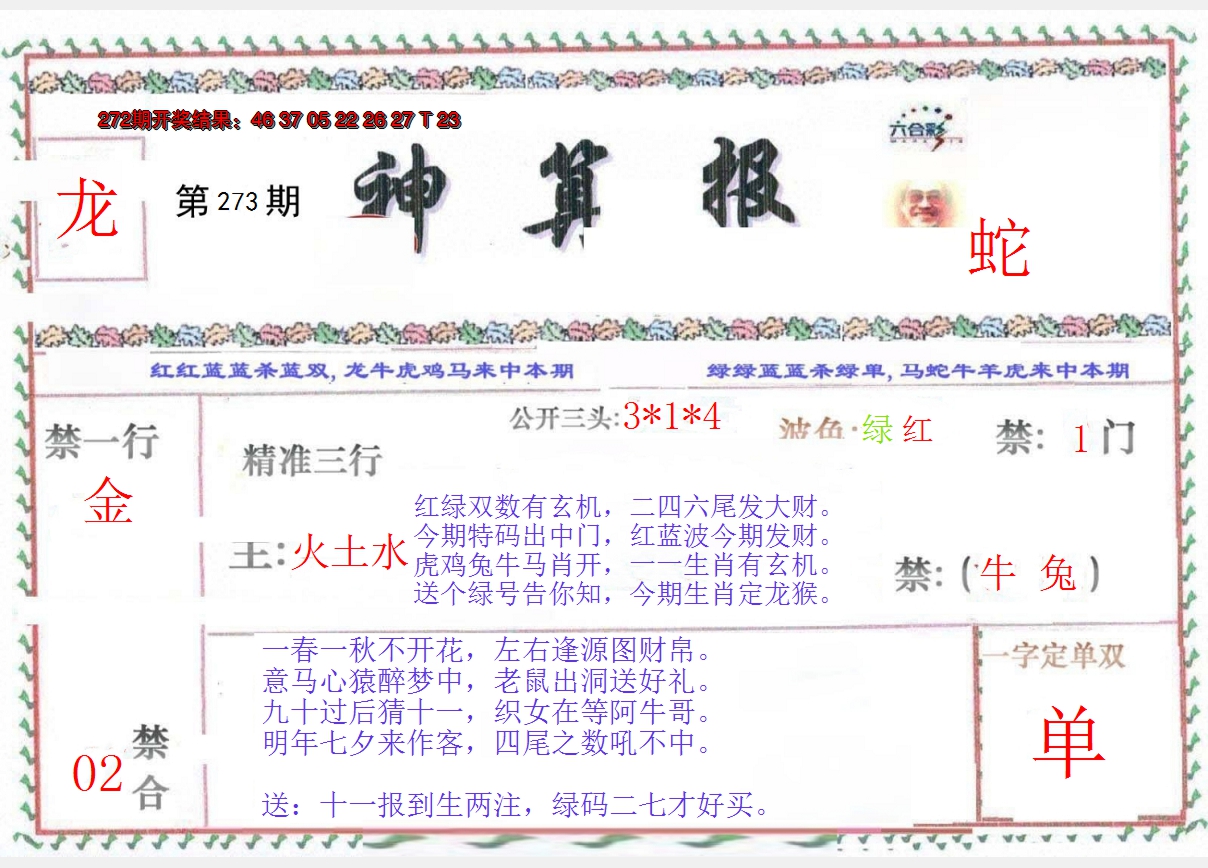 272期开奖结果：46 37 05 22 26 27 T 23
六合彩
龙
第273期
神算报
蛇
红红蓝蓝杀蓝双,龙牛虎鸡马来中本期
绿绿蓝蓝杀绿单,马蛇牛羊虎来中本期
禁一行
金
公开三头:3*1*4
波色:绿 红
禁: 1门
精准三行
主:火土水
红绿双数有玄机，二四六尾发大财。
今期特码出中门，红蓝波今期发财。
虎鸡兔牛马肖开，一一生肖有玄机。
送个绿号告你知，今期生肖定龙猴。
禁:(牛 兔)
一春一秋不开花，左右逢源图财帛。
意马心猿醉梦中，老鼠出洞送好礼。
九十过后猜十一，织女在等阿牛哥。
明年七夕来作客，四尾之数吼不中。
送：十一报到生两注，绿码二七才好买。
02
禁合
一字定单双
单